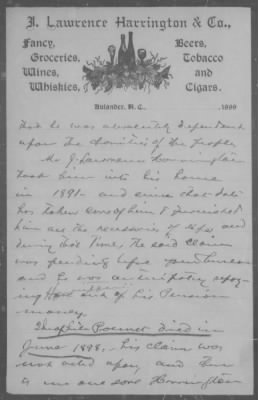 J. Lawrence Harrington & Co.,
Fancy Groceries, Wines, Whiskies,
Beers, Tobacco and Cigars.
Aulander, N. C., 1899
that he was absolutely dependent
upon the charities of the people
Mr J. Lawrence Harrington
took him into his home
in 1891 - and since that date
has taken care of him & furnished
him all the necessaries of life, and
during said time, the said claim
was pending before
and he was anticipating repay-
ing out of his Pension
money.
Theophile died in
June 1898, his claim was
not acted upon, and there
is no one save Harrington